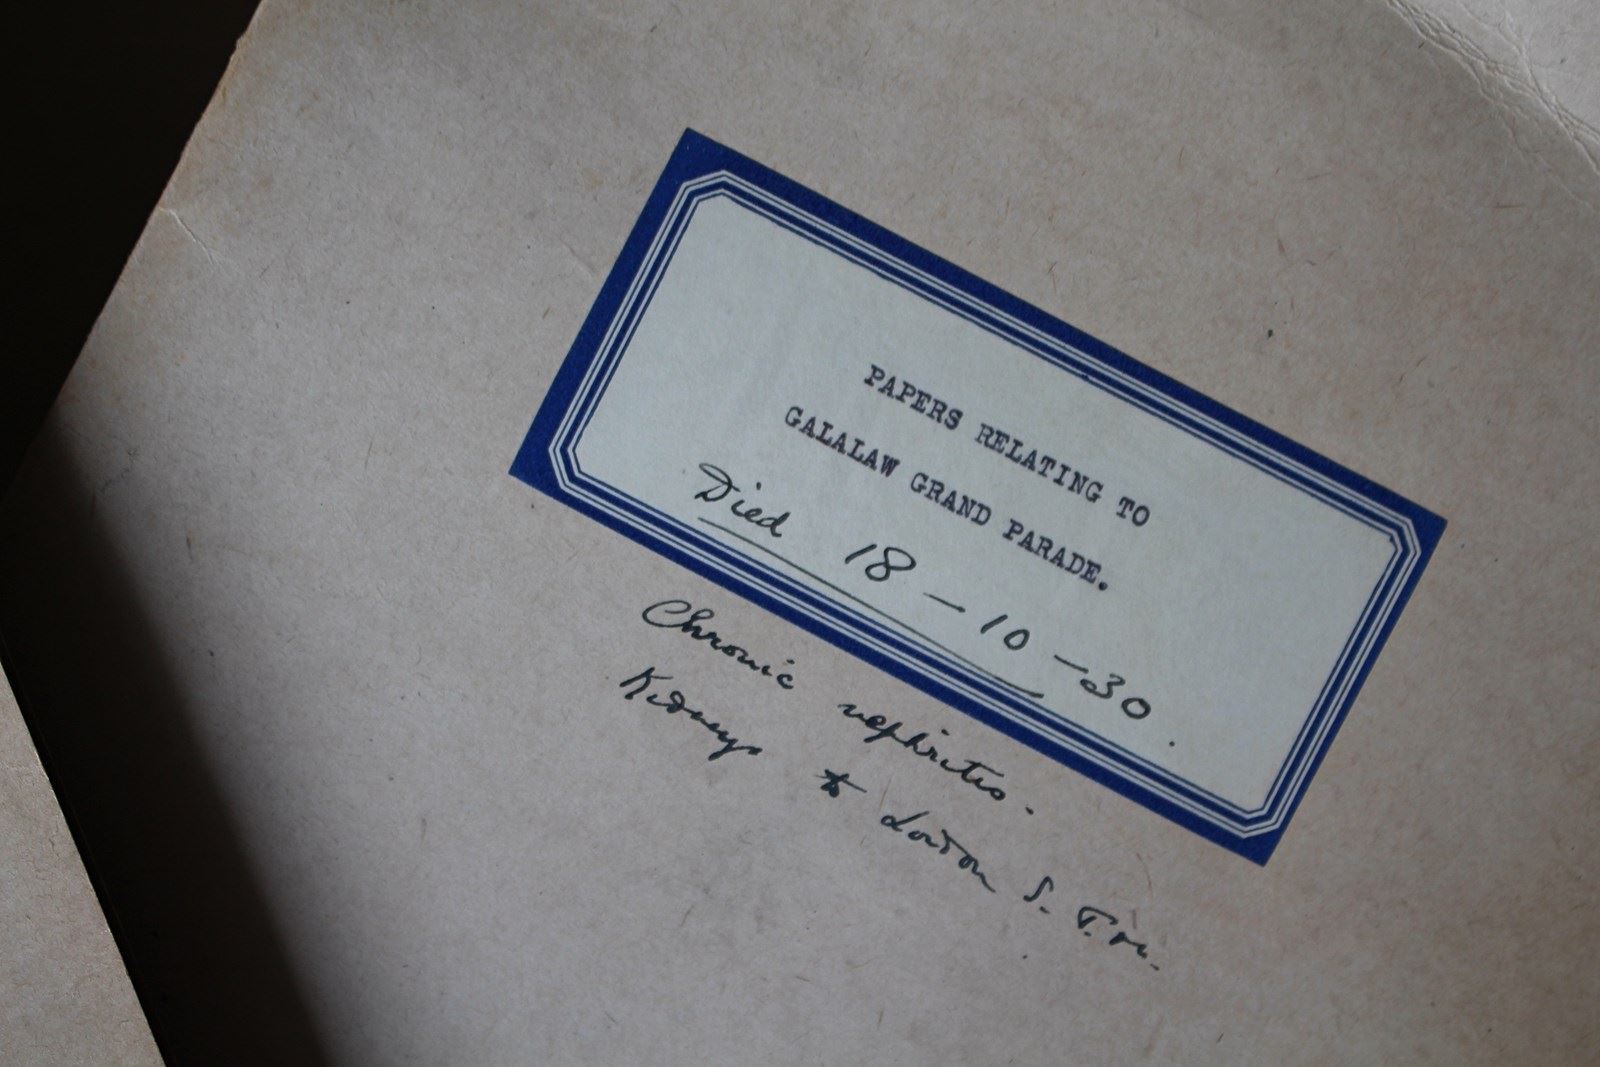 PAPERS RELATING TO
GALALAW GRAND PARADE.
Died 18-10-30.
Chronic nephritis.
Kidneys to London S. T. M.